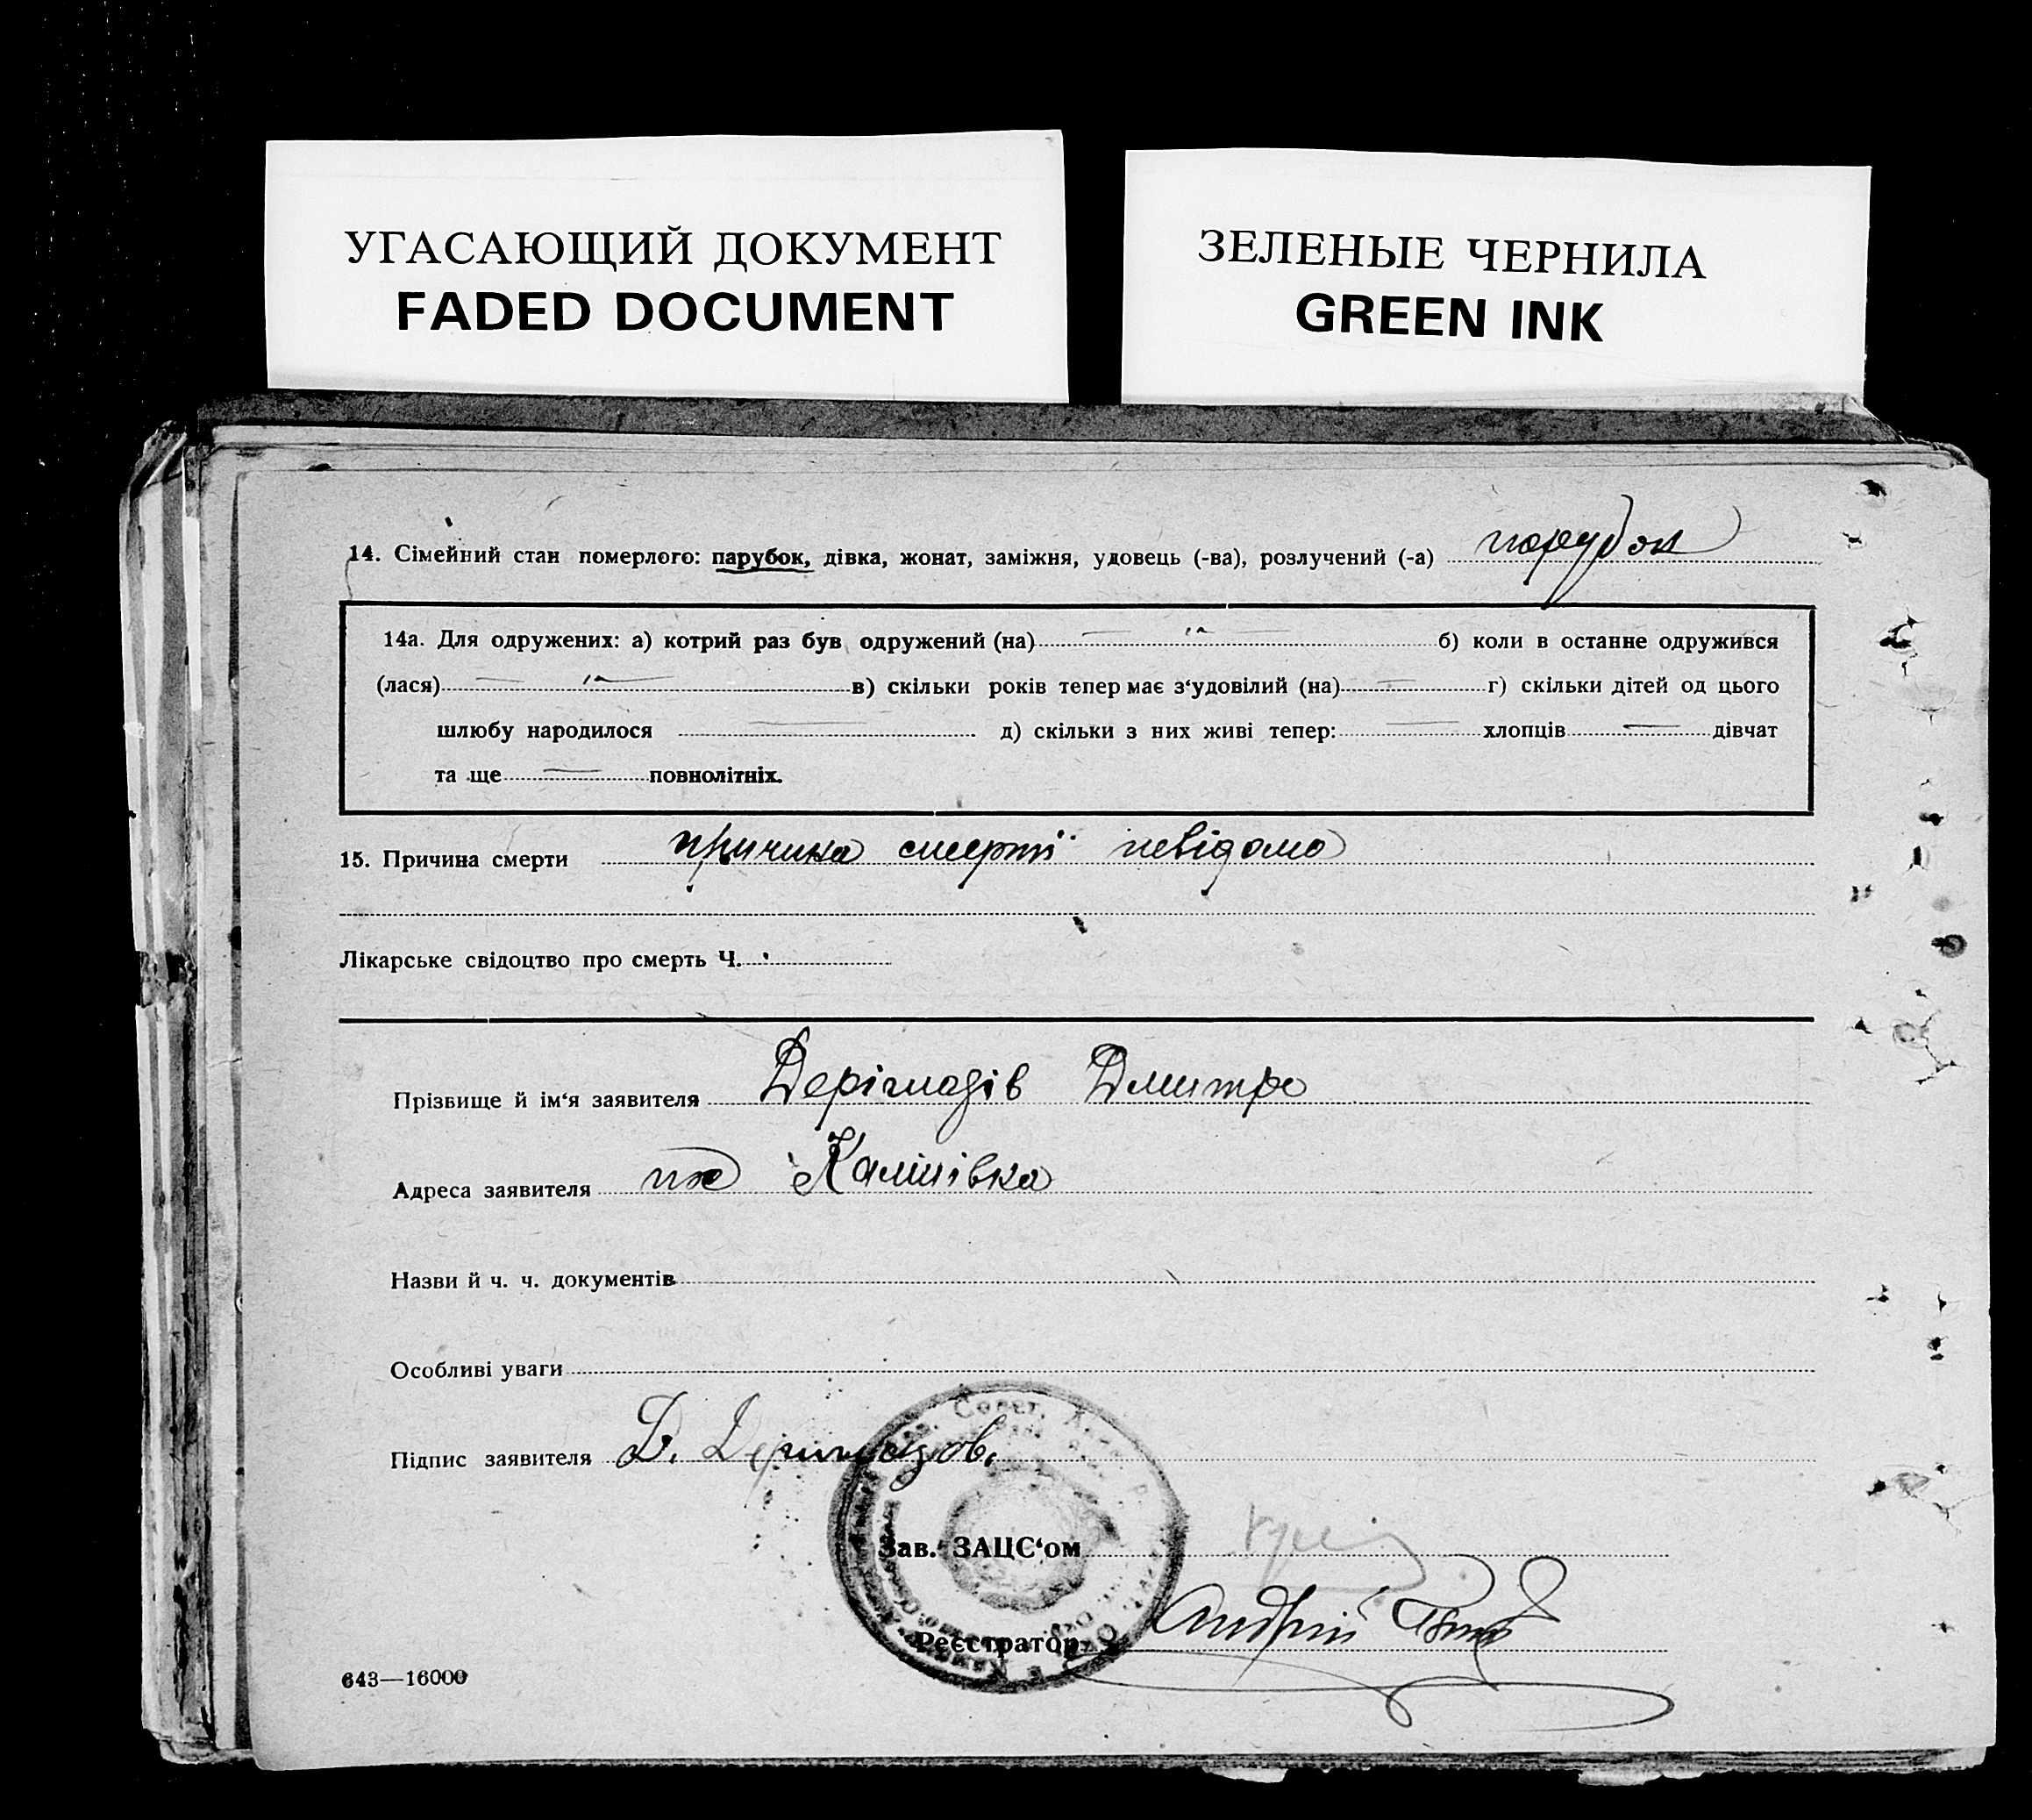 УГАСАЮЩИЙ ДОКУМЕНТ
FADED DOCUMENT
ЗЕЛЕНЫЕ ЧЕРНИЛА
GREEN INK
14. Сімейний стан померлого: парубок, дівка, жонат, заміжня, удовець (-ва), розлучений (-а) парубок
14а. Для одружених: а) котрий раз був одружений (на) б) коли в останне одружився
(лася) в) скільки років тепер має з‘удовілий (на) г) скільки дітей од цього
шлюбу народилося д) скільки з них живі тепер: хлопців дівчат
та ще повнолітніх.
15. Причина смерти причина смерті невідома
Лікарське свідоцтво про смерть Ч.
Прізвище й ім‘я заявителя Дмитро
Адреса заявителя
Назви й ч. ч. документів
Особливі уваги
Підпис заявителя Д.
Зав. ЗАЦС‘ом
Реєстратор Андрій
643—16000